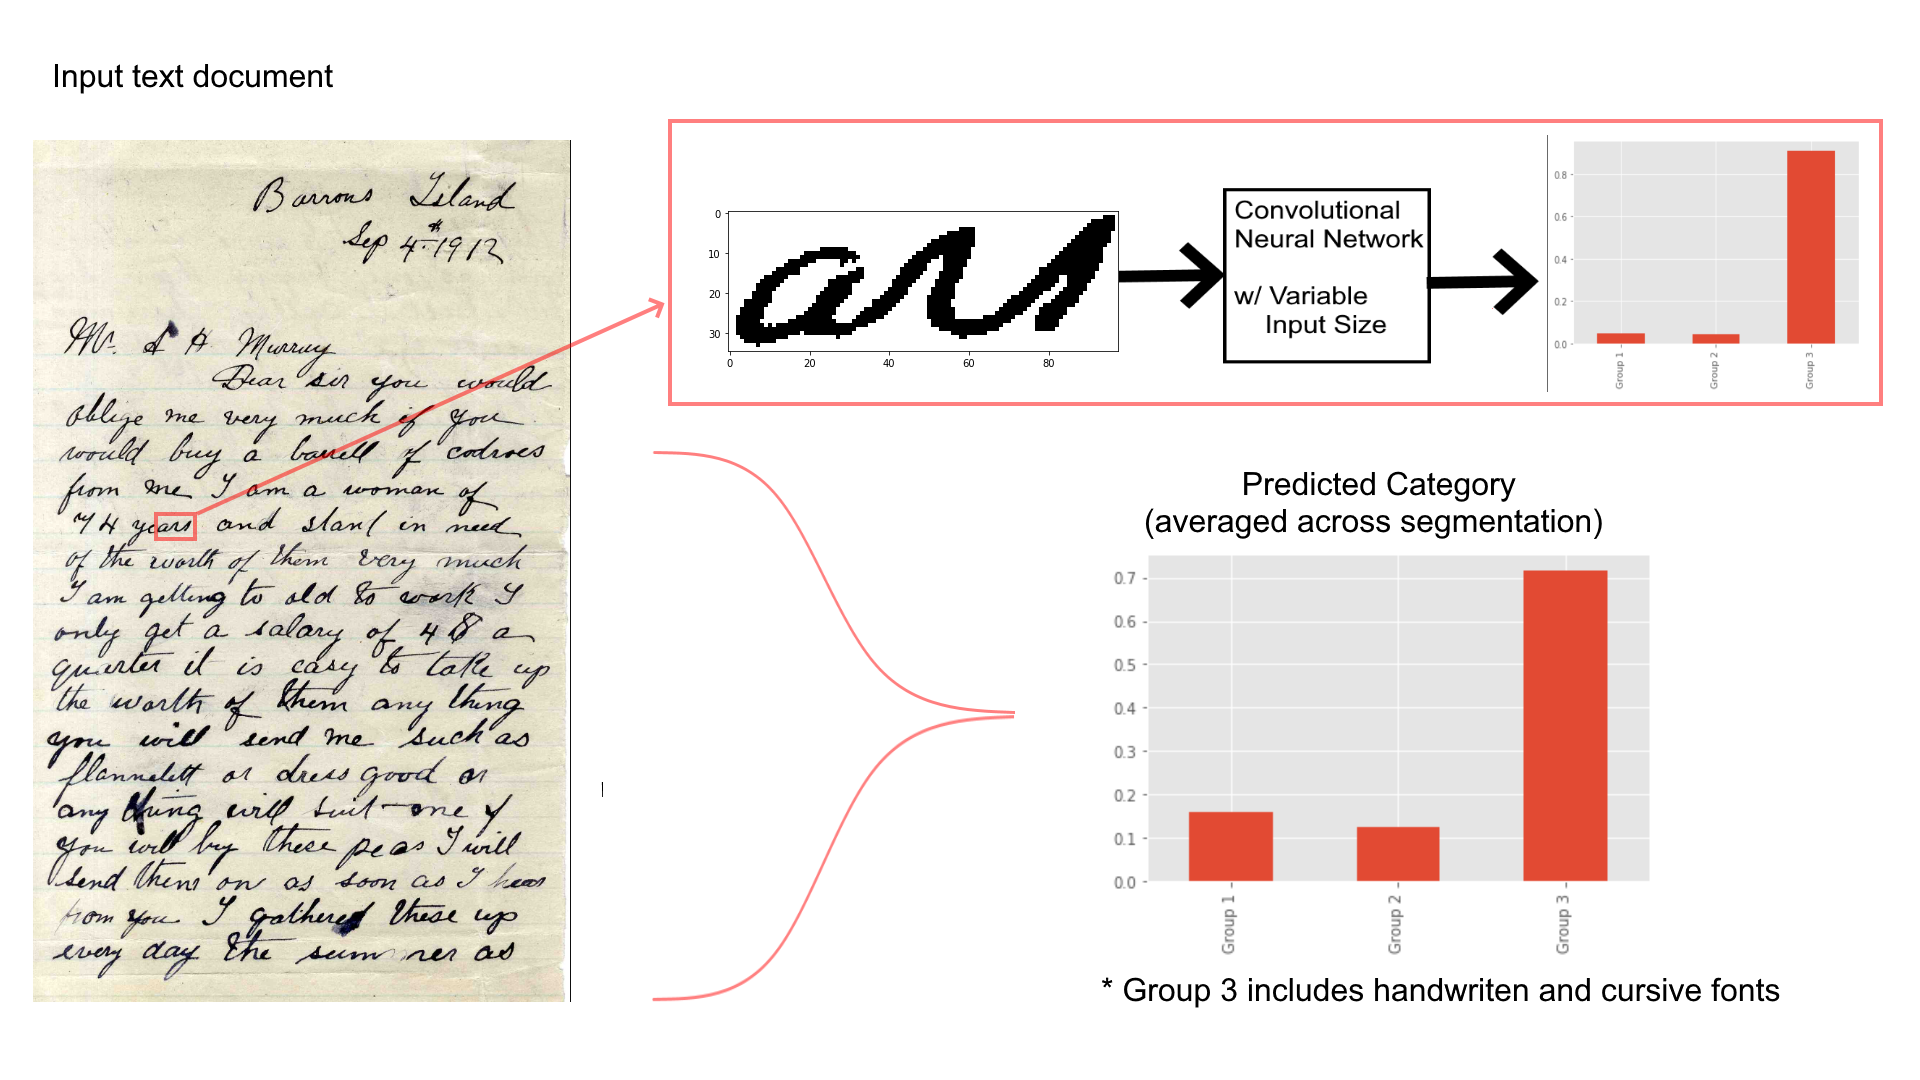 Input text document
Barrons Island
Sep 4th 1912
Mr. S H Murray
Dear sir you would
oblige me very much if you
would buy a barrell of codroes
from me I am a woman of
74 years and stant in need
of the worth of them very much
I am getting to old to work I
only get a salary of 48 a
quarter it is easy to take up
the worth of them any thing
you will send me such as
flannelett or dress good or
any thing will suit me if
you will by these peas I will
send them on as soon as I hear
from you I gathered these up
every day the summer as
0
10
20
30
0 20 40 60 80
ars
Convolutional
Neural Network
w/ Variable
Input Size
0.8
0.6
0.4
0.2
0.0
Group 1 Group 2 Group 3
Predicted Category
(averaged across segmentation)
0.7
0.6
0.5
0.4
0.3
0.2
0.1
0.0
Group 1 Group 2 Group 3
* Group 3 includes handwriten and cursive fonts